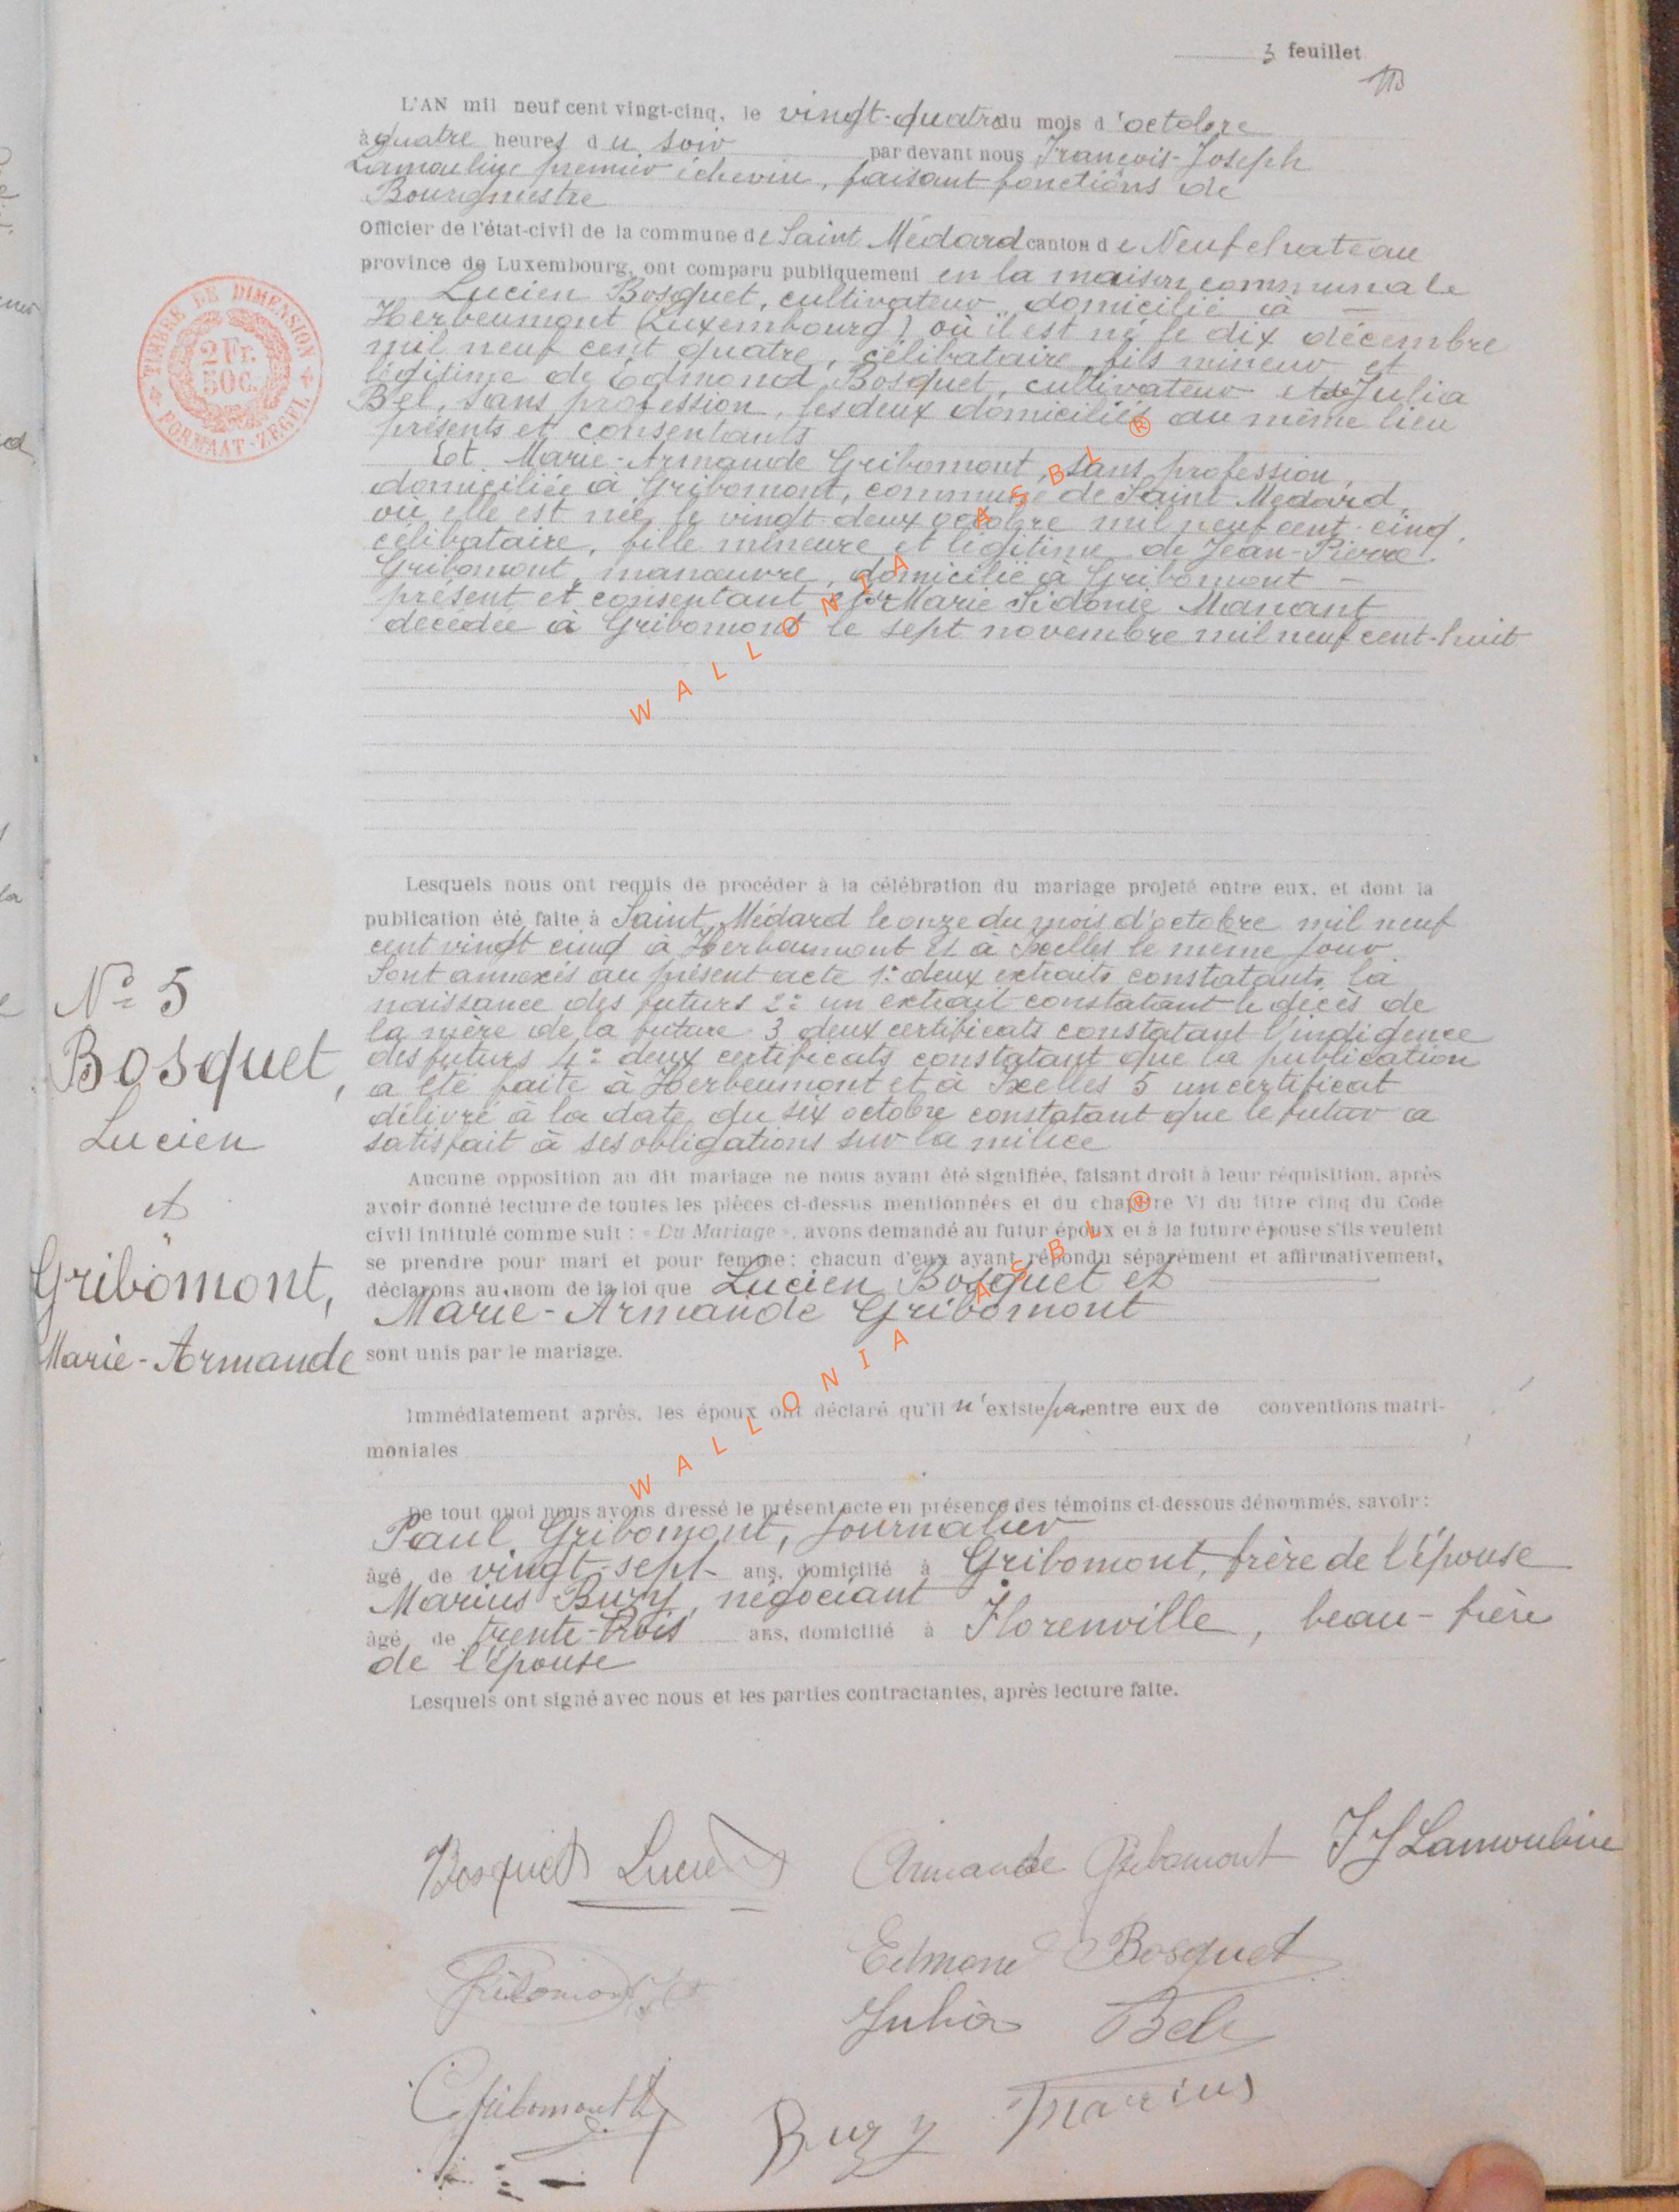 3 feuillet
L'AN mil neuf cent vingt-cinq, le vingt-quatre du mois d'octobre
à quatre heures du soir par devant nous François-Joseph
Lamouline premier échevin, faisant fonctions de
Bourgmestre
Officier de l'état-civil de la commune de Saint Médard canton de Neufchateau
province de Luxembourg, ont comparu publiquement en la maison communale
Lucien Bosquet, cultivateur, domicilié à
Herbeumont (Luxembourg) où il est né le dix décembre
mil neuf cent quatre, célibataire, fils mineur et
légitime de Edmond Bosquet, cultivateur et de Julia
Bel, sans profession, les deux domiciliés au même lieu
présents et consentants
Et Marie-Armande Gribomont, sans profession,
domiciliée à Gribomont, commune de Saint Médard
où elle est née le vingt-deux octobre mil neuf cent-cinq,
célibataire, fille mineure et légitime de Jean-Pierre
Gribomont, manœuvre, domicilié à Gribomont -
présent et consentant et de Marie Sidonie Manant
décédée à Gribomont le sept novembre mil neuf cent-huit
WALLONIA ASBL ®
TIMBRE DE DIMENSION
2 Fr.
50 C.
FORMAAT-ZEGEL
Lesquels nous ont requis de procéder à la célébration du mariage projeté entre eux, et dont la
publication été faite à Saint Médard le onze du mois d'octobre mil neuf
cent vingt cinq à Herbeumont et à Ixelles le même jour.
Sont annexés au présent acte 1: deux extraits constatants la
naissance des futurs 2: un extrait constatant le décès de
la mère de la future 3 deux certificats constatant l'indigence
des futurs 4: deux certificats constatant que la publication
a été faite à Herbeumont et à Ixelles 5 un certificat
délivré à la date du six octobre constatant que le futur a
satisfait à ses obligations sur la milice
N° 5
Bosquet,
Lucien
et
Gribomont,
Marie-Armande
Aucune opposition au dit mariage ne nous ayant été signifiée, faisant droit à leur réquisition, après
avoir donné lecture de toutes les pièces ci-dessus mentionnées et du chapitre VI du titre cinq du Code
civil intitulé comme suit : « Du Mariage », avons demandé au futur époux et à la future épouse s'ils veulent
se prendre pour mari et pour femme; chacun d'eux ayant répondu séparément et affirmativement,
déclarons au nom de la loi que Lucien Bosquet et
Marie-Armande Gribomont
sont unis par le mariage.
WALLONIA ASBL ®
Immédiatement après, les époux ont déclaré qu'il n'existe pas entre eux de conventions matri-
moniales
De tout quoi nous avons dressé le présent acte en présence des témoins ci-dessous dénommés, savoir :
Paul Gribomont, journalier
âgé de vingt-sept ans, domicilié à Gribomont, frère de l'épouse
Marius Buzy, négociant
âgé de trente-trois ans, domicilié à Florenville, beau-frère
de l'épouse
Lesquels ont signé avec nous et les parties contractantes, après lecture faite.
Bosquet Lucien Armande Gribomont FJ Lamouline
Edmond Bosquet
Gribomont
Julia Bel
Gribomont
Buzy Marius